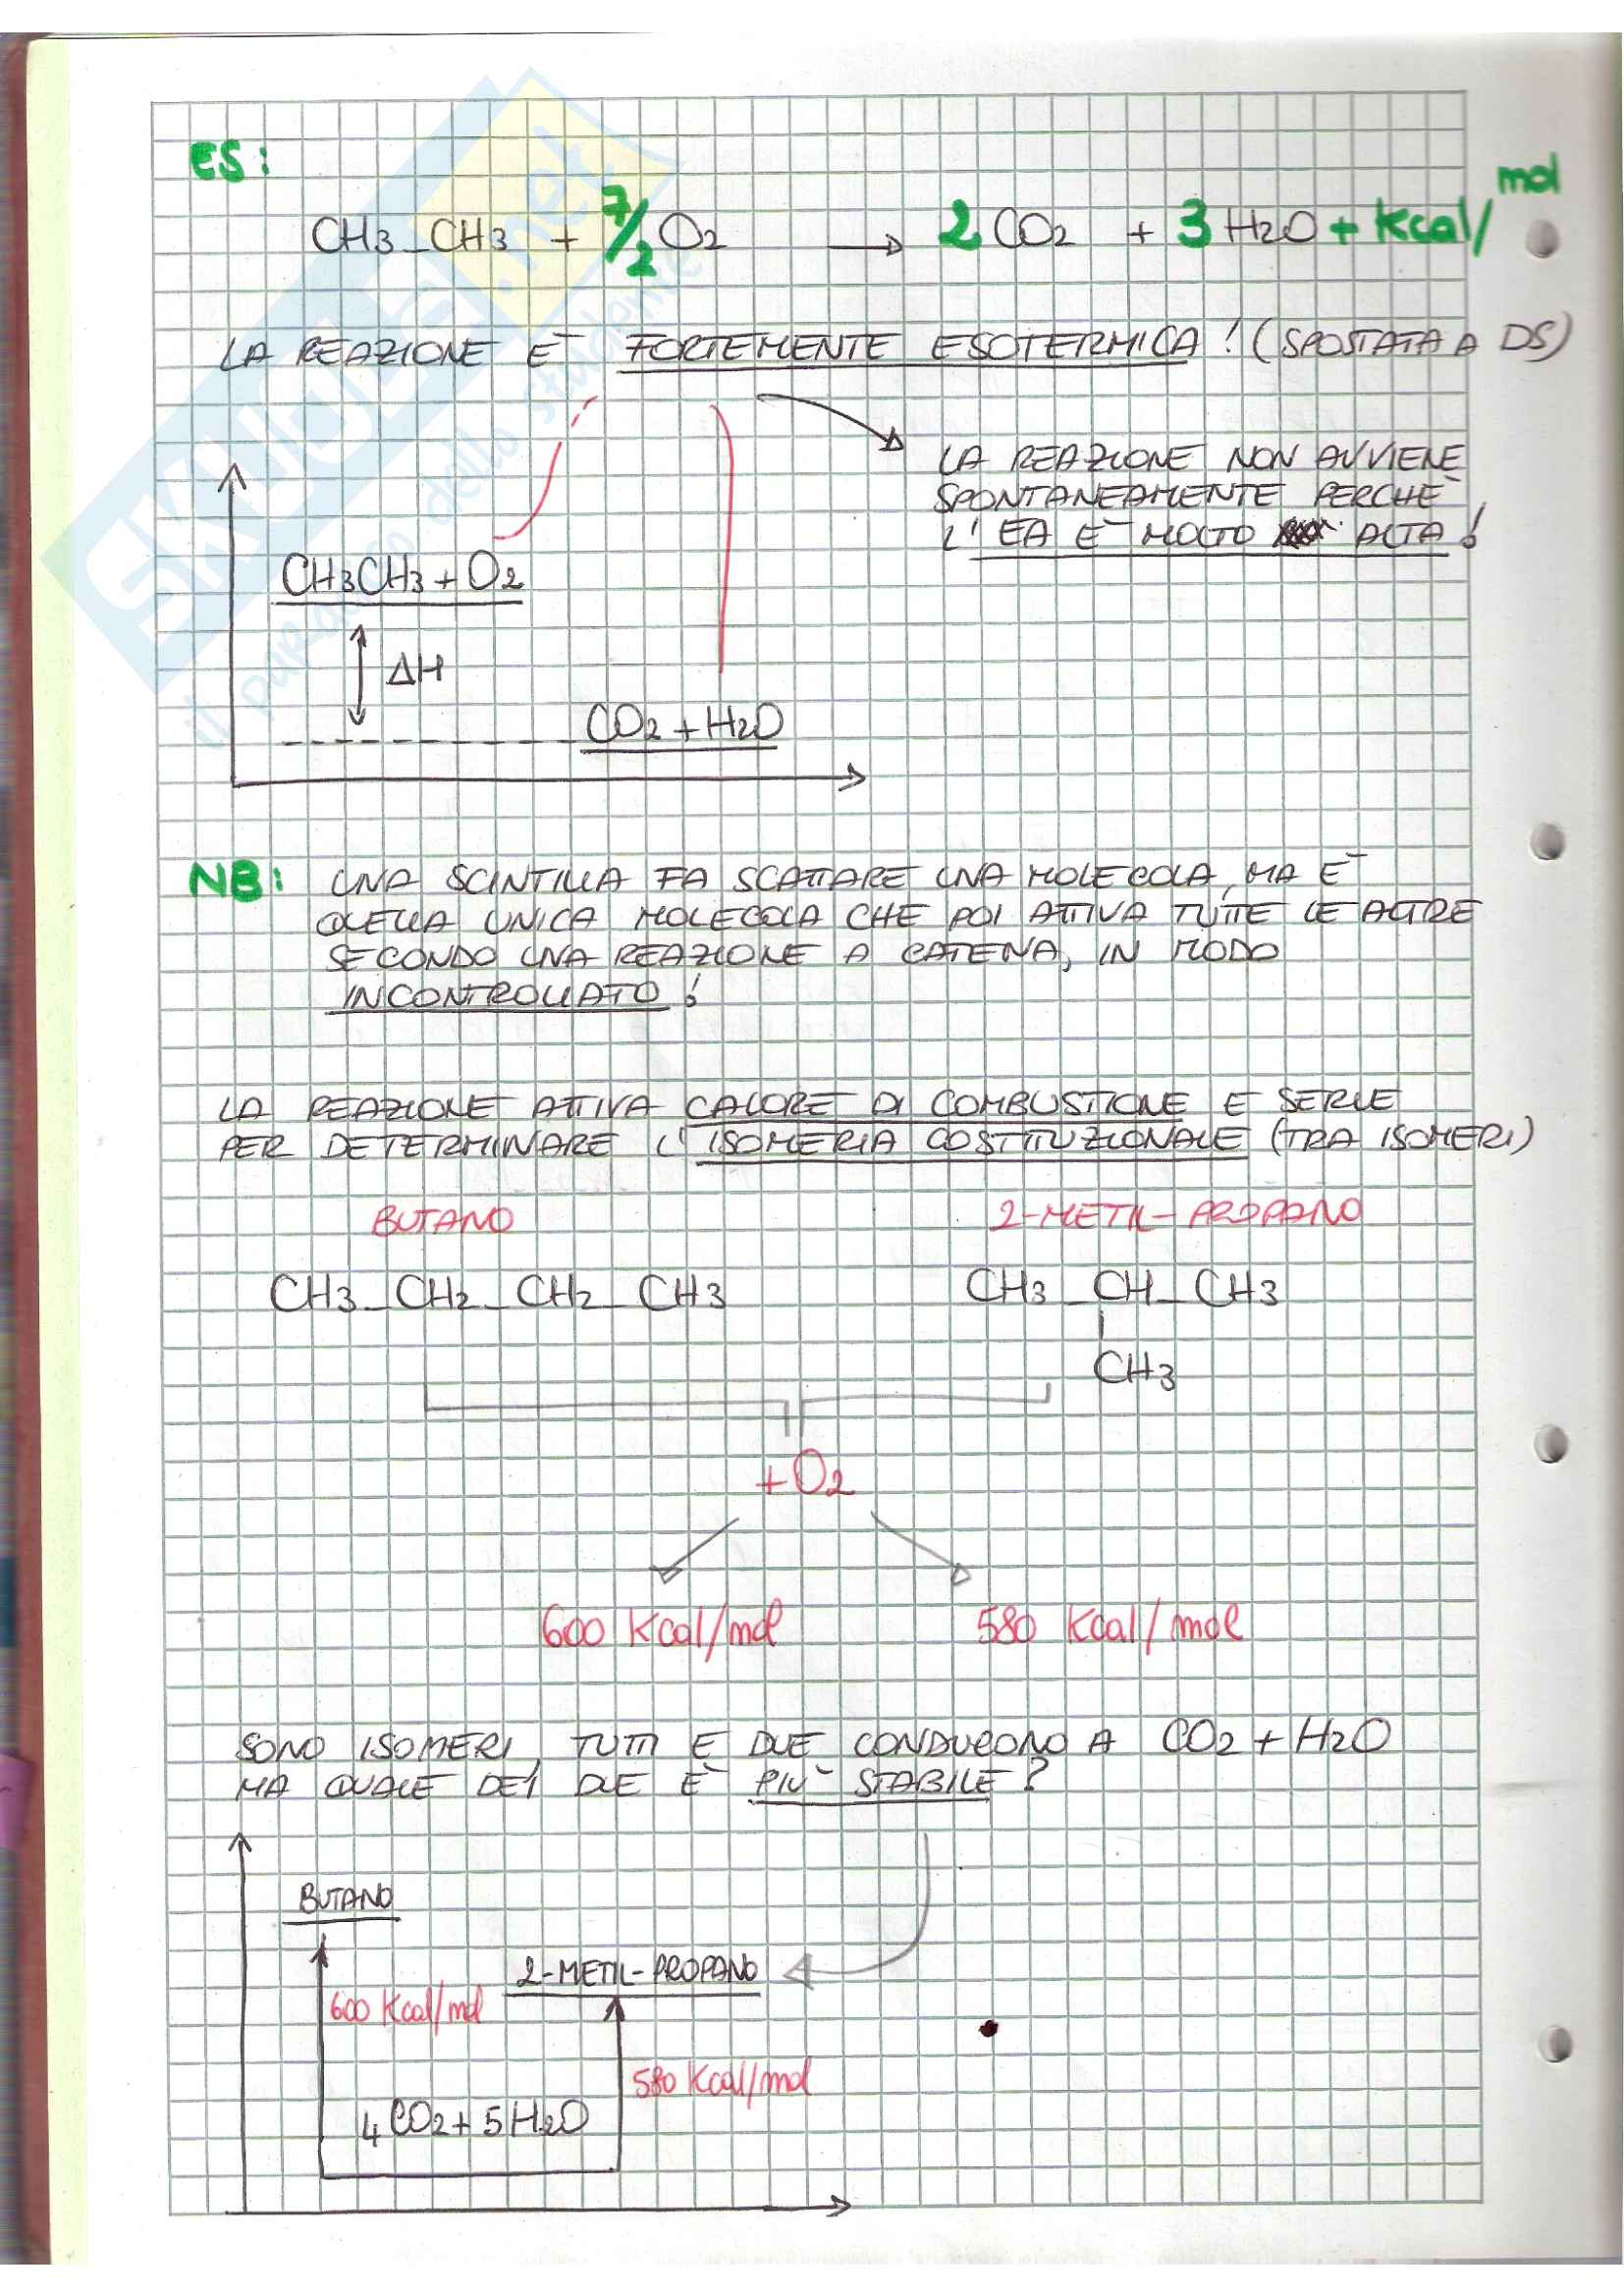 ES:
CH3_CH3 + 7/2 O2 → 2 CO2 + 3 H2O + Kcal/mol
LA REAZIONE E' FORTEMENTE ESOTERMICA! (SPOSTATA A DS)
LA REAZIONE NON AVVIENE
SPONTANEAMENTE PERCHE'
L'EA E' MOLTO ALTA!
CH3CH3 + O2
ΔH
CO2 + H2O
NB: UNA SCINTILLA FA SCATTARE UNA MOLECOLA, MA E'
QUELLA UNICA MOLECOLA CHE POI ATTIVA TUTTE LE ALTRE
SECONDO UNA REAZIONE A CATENA, IN MODO
INCONTROLLATO!
LA REAZIONE ATTIVA CALORE DI COMBUSTIONE E SERVE
PER DETERMINARE L'ISOMERIA COSTITUZIONALE (TRA ISOMERI)
BUTANO 2-METIL-PROPANO
CH3_CH2_CH2_CH3 CH3_CH_CH3
CH3
+O2
600 Kcal/mol 580 Kcal/mol
SONO ISOMERI, TUTTI E DUE CONDUCONO A CO2 + H2O
MA QUALE DEI DUE E' PIU' STABILE?
BUTANO
2-METIL-PROPANO
600 Kcal/mol
580 Kcal/mol
4CO2 + 5H2O
SKUOLA.net
il paradiso dello studente